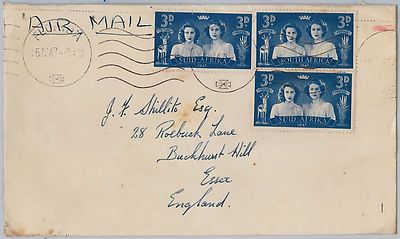 AIR MAIL
3D 3D
SUID-AFRIKA SOUTH AFRICA
1947 1947
3D
SUID-AFRIKA
1947
J. F. Skillito Esq.
28 Roebuck Lane
Buckhurst Hill
Essex
England.